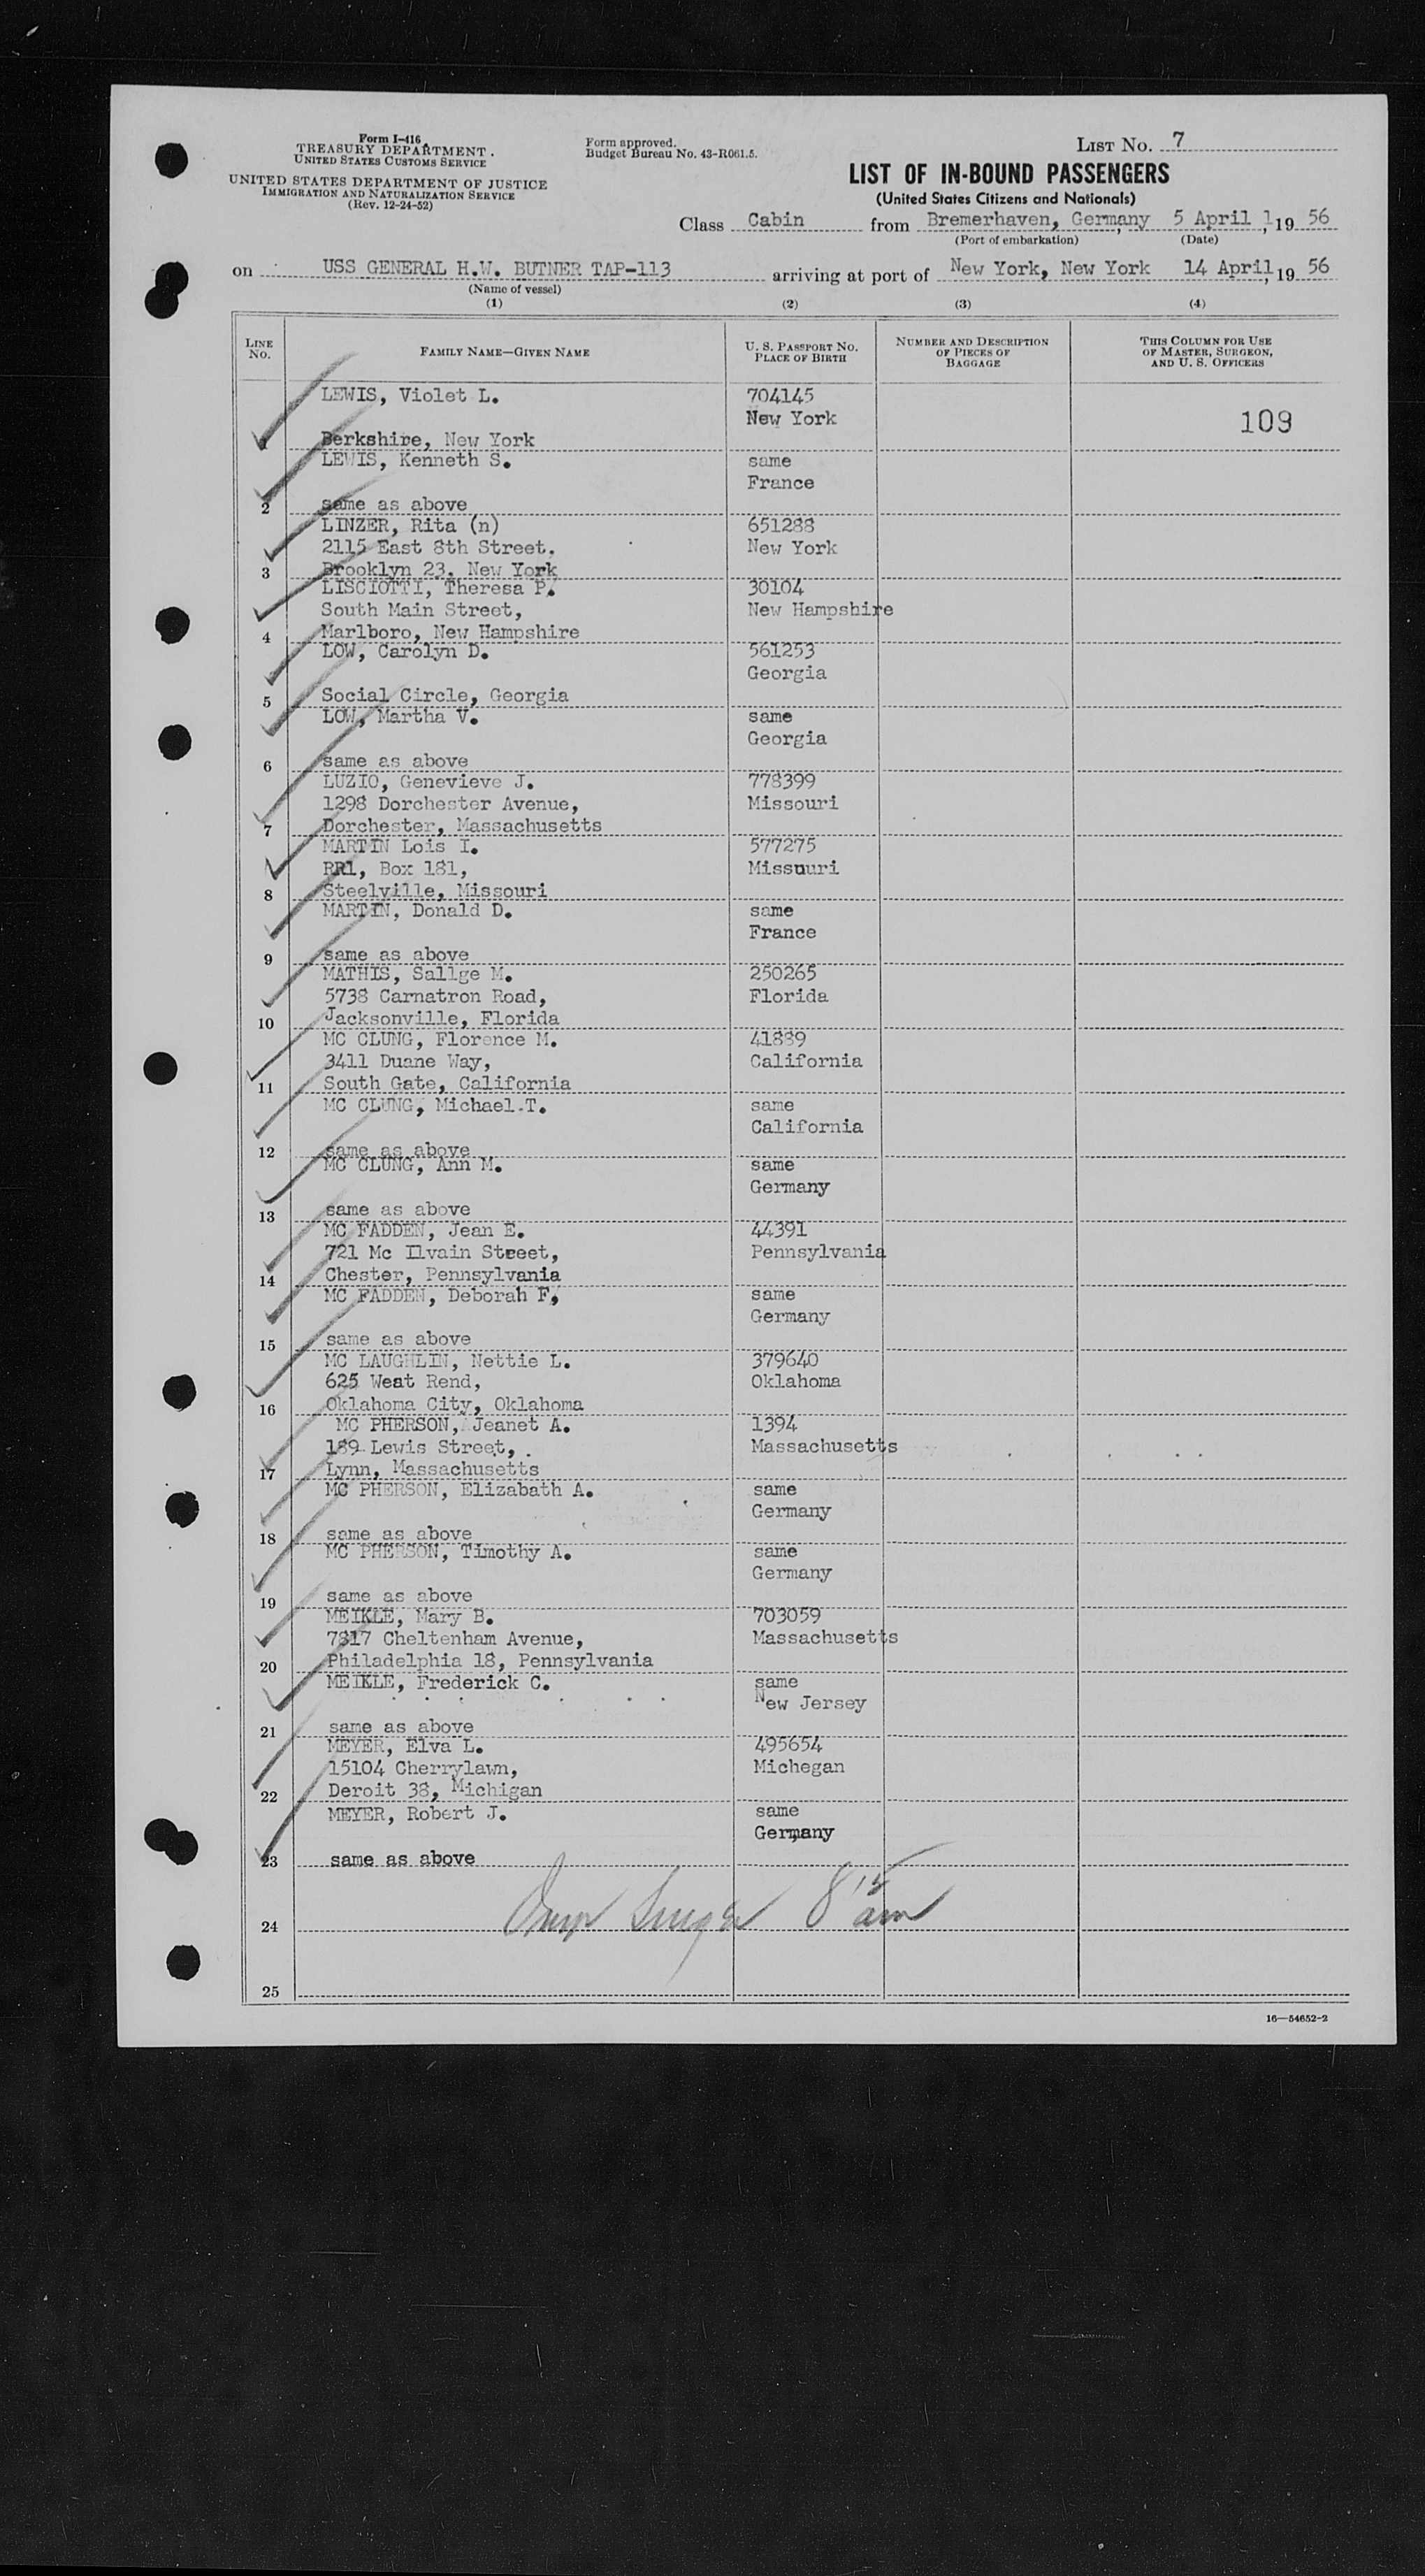 Form I-416
TREASURY DEPARTMENT.
UNITED STATES CUSTOMS SERVICE
UNITED STATES DEPARTMENT OF JUSTICE
IMMIGRATION AND NATURALIZATION SERVICE
(Rev. 12-24-52)
Form approved.
Budget Bureau No. 43-R061.5.
LIST No. 7
LIST OF IN-BOUND PASSENGERS
(United States Citizens and Nationals)
Class Cabin from Bremerhaven, Germany, 5 April 1, 19 56
(Port of embarkation) (Date)
on USS GENERAL H.W. BUTNER TAP-113 arriving at port of New York, New York 14 April, 19 56
(Name of vessel)
(1) (2) (3) (4)
LINE No. FAMILY NAME—GIVEN NAME U. S. PASSPORT NO. PLACE OF BIRTH NUMBER AND DESCRIPTION OF PIECES OF BAGGAGE THIS COLUMN FOR USE OF MASTER, SURGEON, AND U. S. OFFICERS
LEWIS, Violet L. 704145
New York 109
1 Berkshire, New York
LEWIS, Kenneth S. same
France
2 same as above
LINZER, Rita (n) 651288
2115 East 8th Street. New York
3 Brooklyn 23, New York
LISCIOTTI, Theresa P. 30104
South Main Street, New Hampshire
4 Marlboro, New Hampshire
LOW, Carolyn D. 561253
Georgia
5 Social Circle, Georgia
LOW, Martha V. same
Georgia
6 same as above
LUZIO, Genevieve J. 778399
1298 Dorchester Avenue, Missouri
7 Dorchester, Massachusetts
MARTIN Lois I. 577275
RR1, Box 181, Missnuri
8 Steelville, Missouri
MARTIN, Donald D. same
France
9 same as above
MATHIS, Sallge M. 250265
5738 Carnatron Road, Florida
10 Jacksonville, Florida
MC CLUNG, Florence M. 41889
3411 Duane Way, California
11 South Gate, California
MC CLUNG, Michael.T. same
California
12 same as above
MC CLUNG, Ann M. same
Germany
13 same as above
MC FADDEN, Jean E. 44391
721 Mc Ilvain Street, Pennsylvania
14 Chester, Pennsylvania
MC FADDEN, Deborah F, same
Germany
15 same as above
MC LAUGHLIN, Nettie L. 379640
625 Weat Rend, Oklahoma
16 Oklahoma City, Oklahoma
MC PHERSON, Jeanet A. 1394
189 Lewis Street, . Massachusetts
17 Lynn, Massachusetts
MC PHERSON, Elizabath A. same
Germany
18 same as above
MC PHERSON, Timothy A. same
Germany
19 same as above
MEIKLE, Mary B. 703059
7817 Cheltenham Avenue, Massachusetts
20 Philadelphia 18, Pennsylvania
MEIKLE, Frederick C. same
New Jersey
21 same as above
MEYER, Elva L. 495654
15104 Cherrylawn, Michegan
22 Deroit 38, Michigan
MEYER, Robert J. same
Germany
23 same as above
8 15 am
24
25
16—54652-2